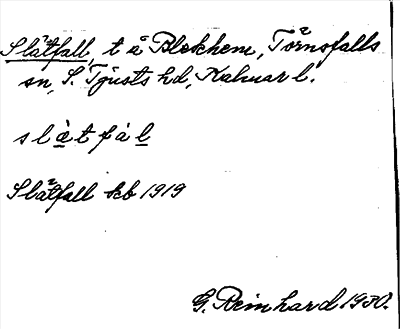 Slätfall, t å Blekhem, Törnsfalls
sn, S. Tjusts hd, Kalmar l.
s l ä̀ t f à l
Slätfall kb 1919
G. Reinhard 1930.